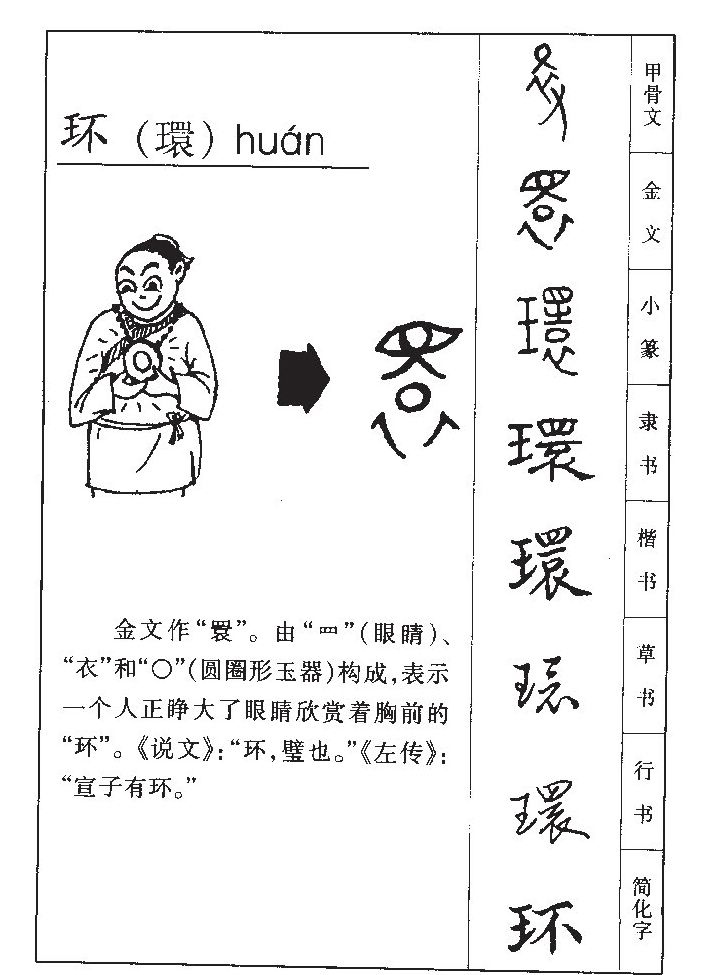 环（環）huán
金文作“睘”。由“罒”（眼睛）、
“衣”和“〇”（圆圈形玉器）构成，表示
一个人正睁大了眼睛欣赏着胸前的
“环”。《说文》：“环，璧也。”《左传》：
“宣子有环。”
甲骨文
金文
小篆
環
隶书
環
楷书
環
草书
環
行书
環
简化字
环